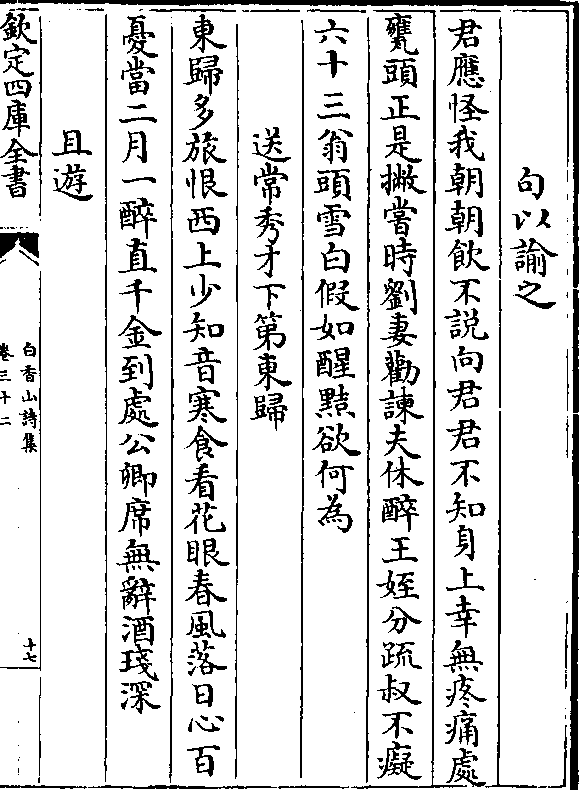 句以諭之
君應怪我朝朝飲不説向君君不知身上幸無疼痛處
甕頭正是撇嘗時劉妻勸諫夫休醉王姪分疏叔不癡
六十三翁頭雪白假如醒黠欲何為
送常秀才下第東歸
東歸多旅恨西上少知音寒食看花眼春風落日心百
憂當二月一醉直千金到處公卿席無辭酒琖深
且遊
欽定四庫全書
白香山詩集
卷三十二
十七